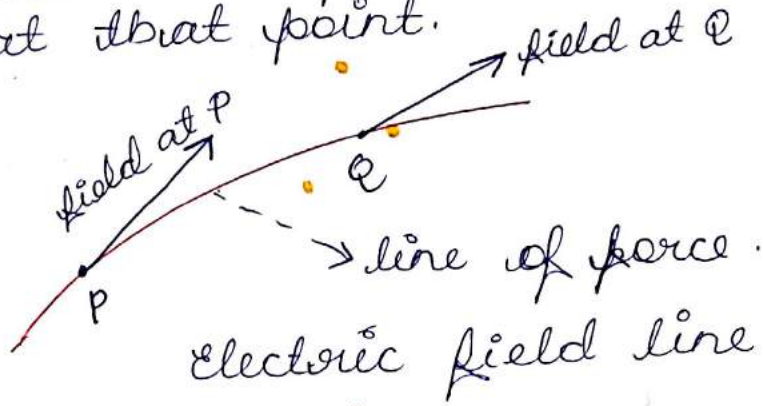 at that point.
field at Q
field at P
Q
line of force.
P
Electric field line